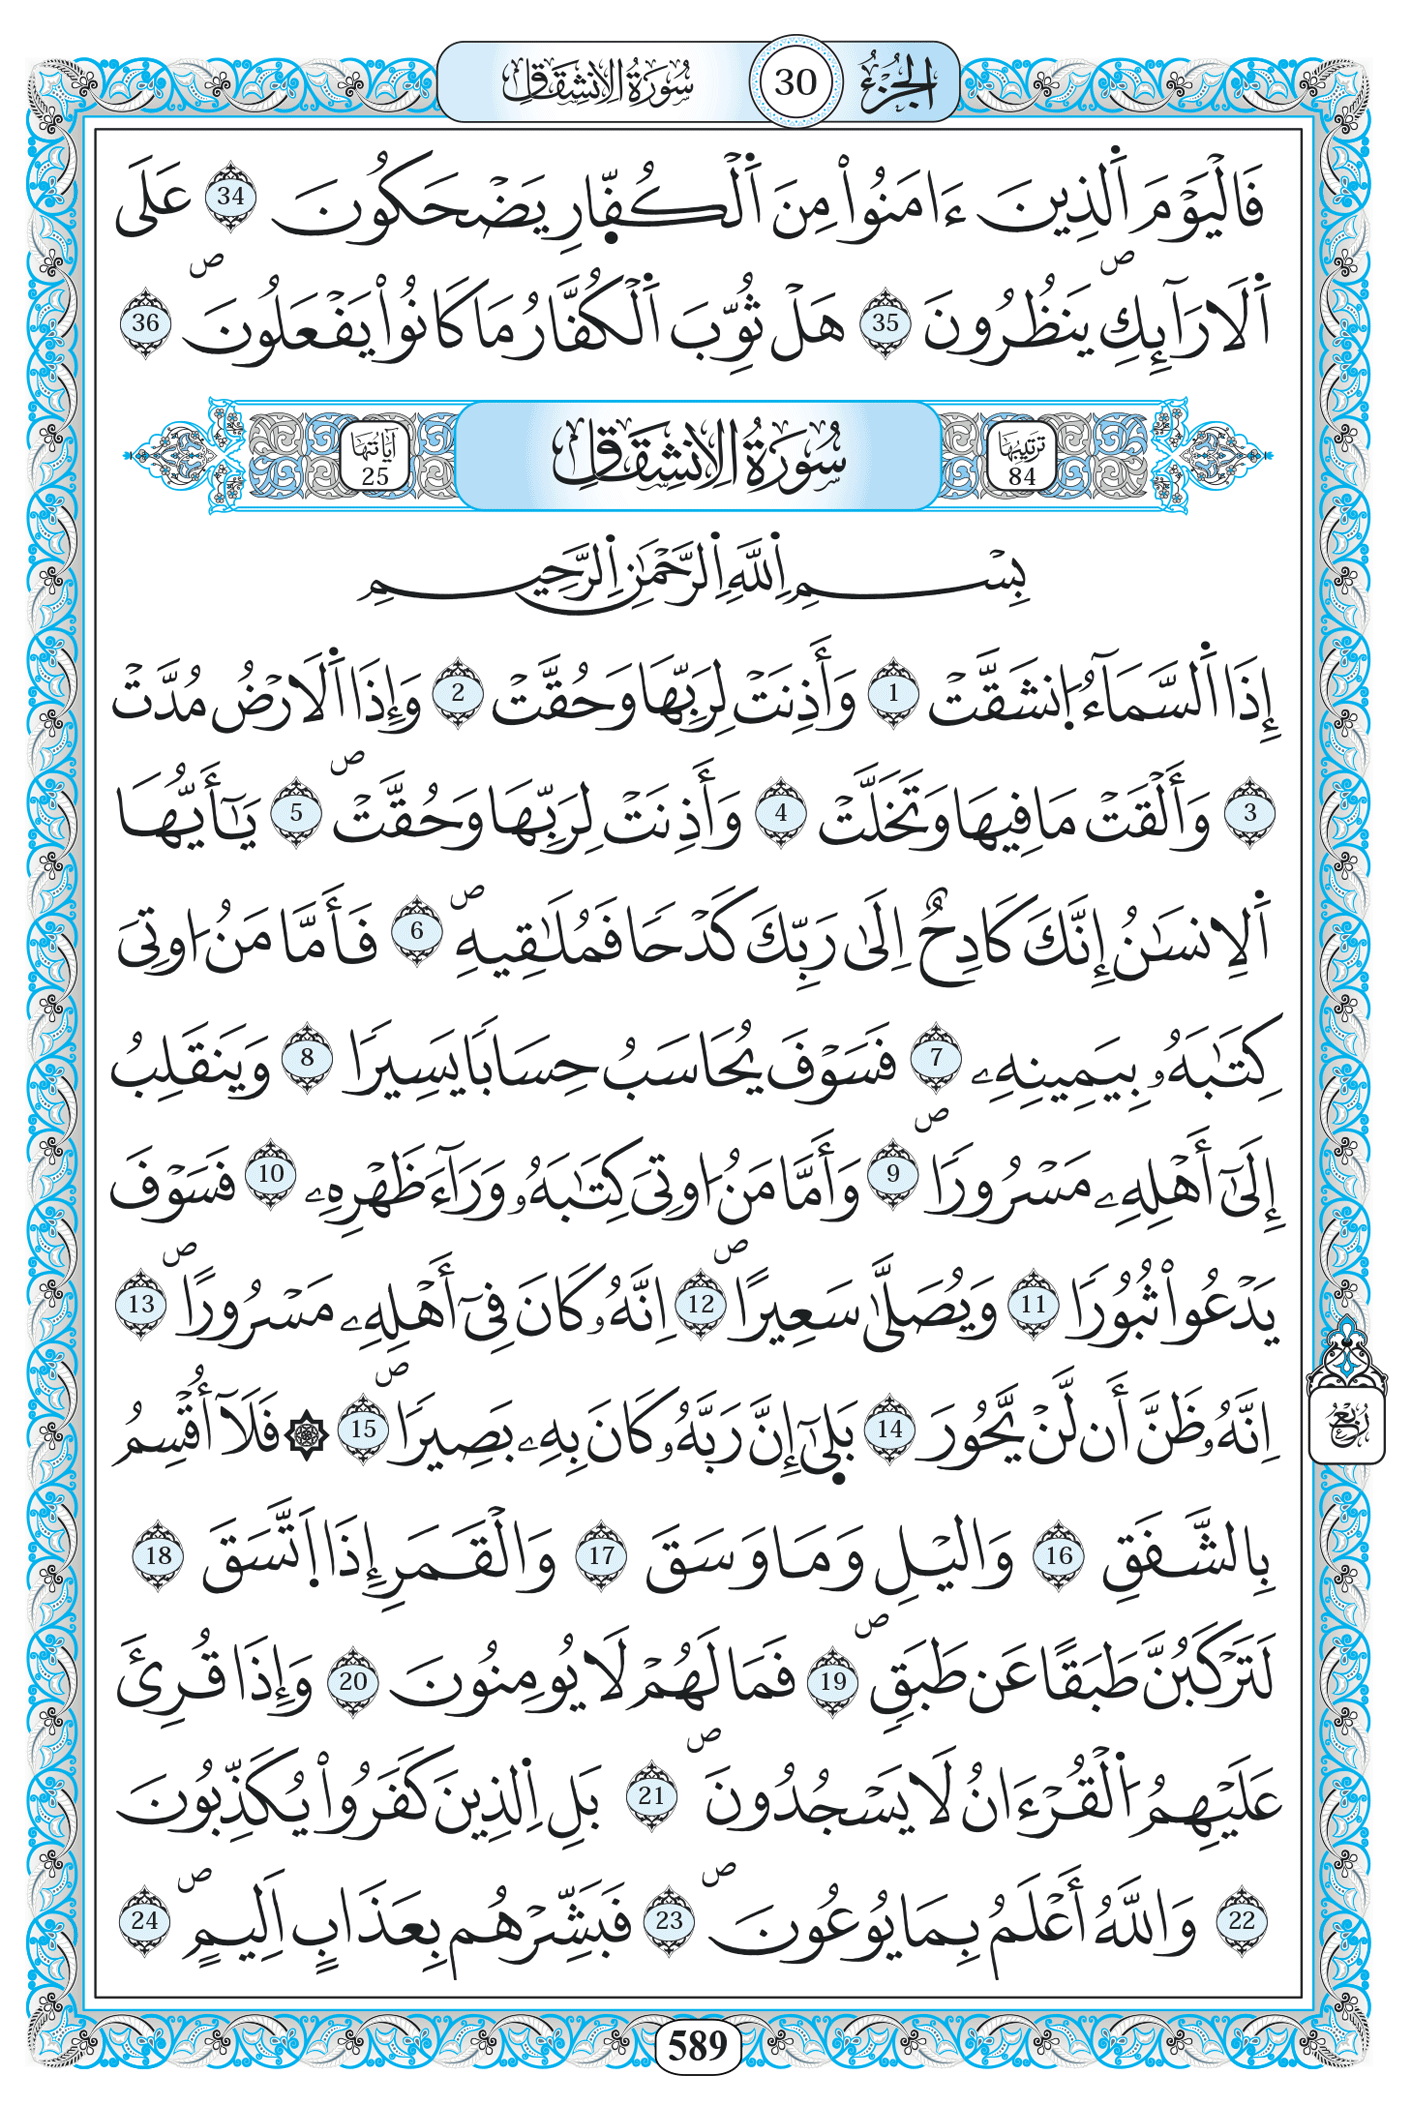 الجزء 30 سورة الانشقاق
فَالْيَوْمَ اَ۬لذِينَ ءَامَنُواْ مِنَ اَ۬لْكُفّ۪ارِ يَضْحَكُونَ 34 عَلَى
اَ۬لَارَآئِكِ صۖ يَنظُرُونَ 35 هَلْ ثُوِّبَ اَ۬لْكُفَّارُ مَا كَانُواْ يَفْعَلُونَ صۖ 36
ترتيبها 84 سورة الانشقاق آياتها 25
بِسْمِ اِ۬للَّهِ اِ۬لرَّحْمَٰنِ اِ۬لرَّحِيمِ
إِذَا اَ۬لسَّمَآءُ اُ۪نشَقَّتْ 1 وَأَذِنَتْ لِرَبِّهَا وَحُقَّتْ 2 وَإِذَا اَ۬لَارْضُ مُدَّتْ
3 وَأَلْقَتْ مَا فِيهَا وَتَخَلَّتْ 4 وَأَذِنَتْ لِرَبِّهَا وَحُقَّتْ صۖ 5 يَٰٓأَيُّهَا
اَ۬لِانسَٰنُ إِنَّكَ كَادِحٌ اِلَىٰ رَبِّكَ كَدْحاٗ فَمُلَٰقِيهِ صۖ 6 فَأَمَّا مَنُ ا۟وتِيَ
كِتَٰبَهُۥ بِيَمِينِهِۦ 7 فَسَوْفَ يُحَاسَبُ حِسَاباٗ يَسِيراٗ 8 وَيَنقَلِبُ
إِلَىٰٓ أَهْلِهِۦ مَسْرُوراٗ صۖ 9 وَأَمَّا مَنُ ا۟وتِيَ كِتَٰبَهُۥ وَرَآءَ ظَهْرِهِۦ 10 فَسَوْفَ
يَدْعُواْ ثُبُوراٗ 11 وَيُصَلَّىٰ سَعِيراً صۖ 12 اِنَّهُۥ كَانَ فِيٓ أَهْلِهِۦ مَسْرُوراً صۖ 13
اِنَّهُۥ ظَنَّ أَن لَّنْ يَّحُورَ 14 بَل۪ىٰٓ إِنَّ رَبَّهُۥ كَانَ بِهِۦ بَصِيراٗ صۖ 15 ۞ فَلَآ أُقْسِمُ
ربع
بِالشَّفَقِ 16 وَاليْلِ وَمَا وَسَقَ 17 وَالْقَمَرِ إِذَا اَ۪تَّسَقَ 18
لَتَرْكَبُنَّ طَبَقاً عَن طَبَقٖ صۖ 19 فَمَا لَهُمْ لَا يُومِنُونَ 20 وَإِذَا قُرِئَ
عَلَيْهِمُ اُ۬لْقُرْءَانُ لَا يَسْجُدُونَ صۖ 21 بَلِ اِ۬لذِينَ كَفَرُواْ يُكَذِّبُونَ
22 وَاللَّهُ أَعْلَمُ بِمَا يُوعُونَ صۖ 23 فَبَشِّرْهُم بِعَذَابٍ اَلِيمٍ صۖ 24
589